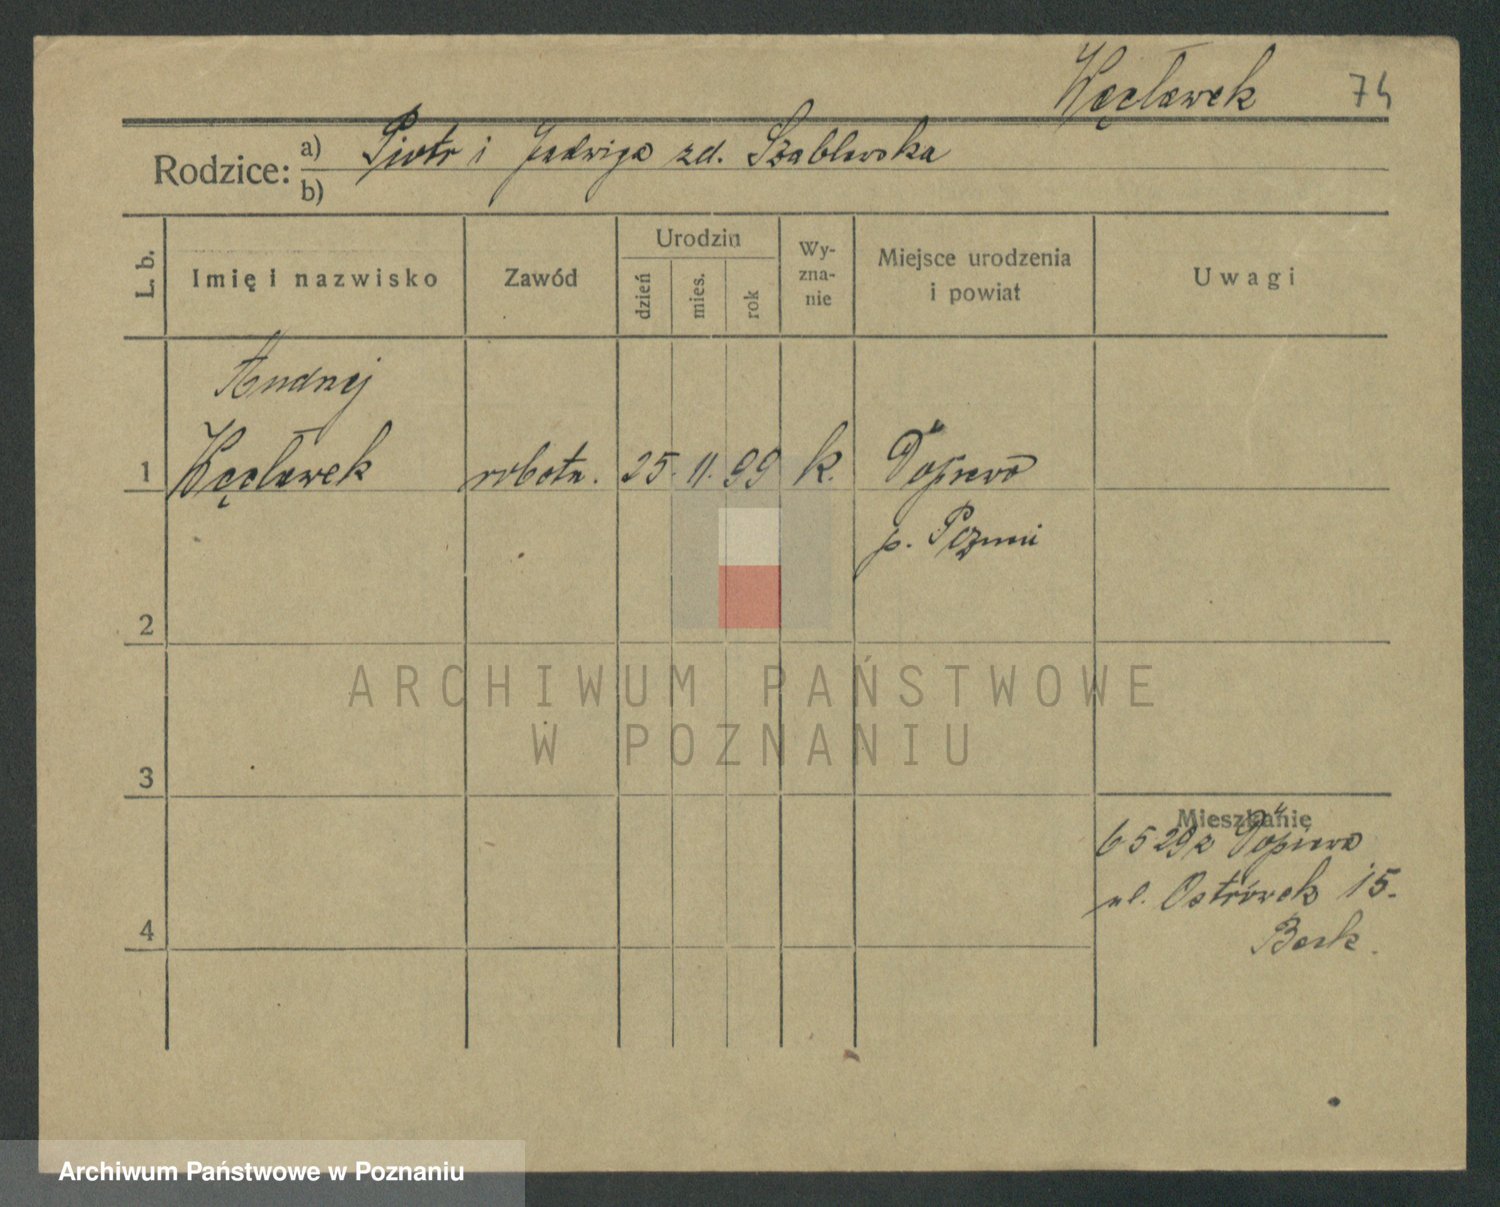 Węcławek 74
Rodzice: a) Piotr i Jadwiga zd. Szablewska
b)
L. b. Imię i nazwisko Zawód Urodzin dzień mies. rok Wyznanie Miejsce urodzenia i powiat Uwagi
Andrzej
1 Węcławek robotn. 25. 11. 99 k. Dopiewo
p. Pozmń
2
ARCHIWUM PAŃSTWOWE
W POZNANIU
3
Mieszkanie
Dopiewo
4 ul. Ostrówek 15.
Archiwum Państwowe w Poznaniu